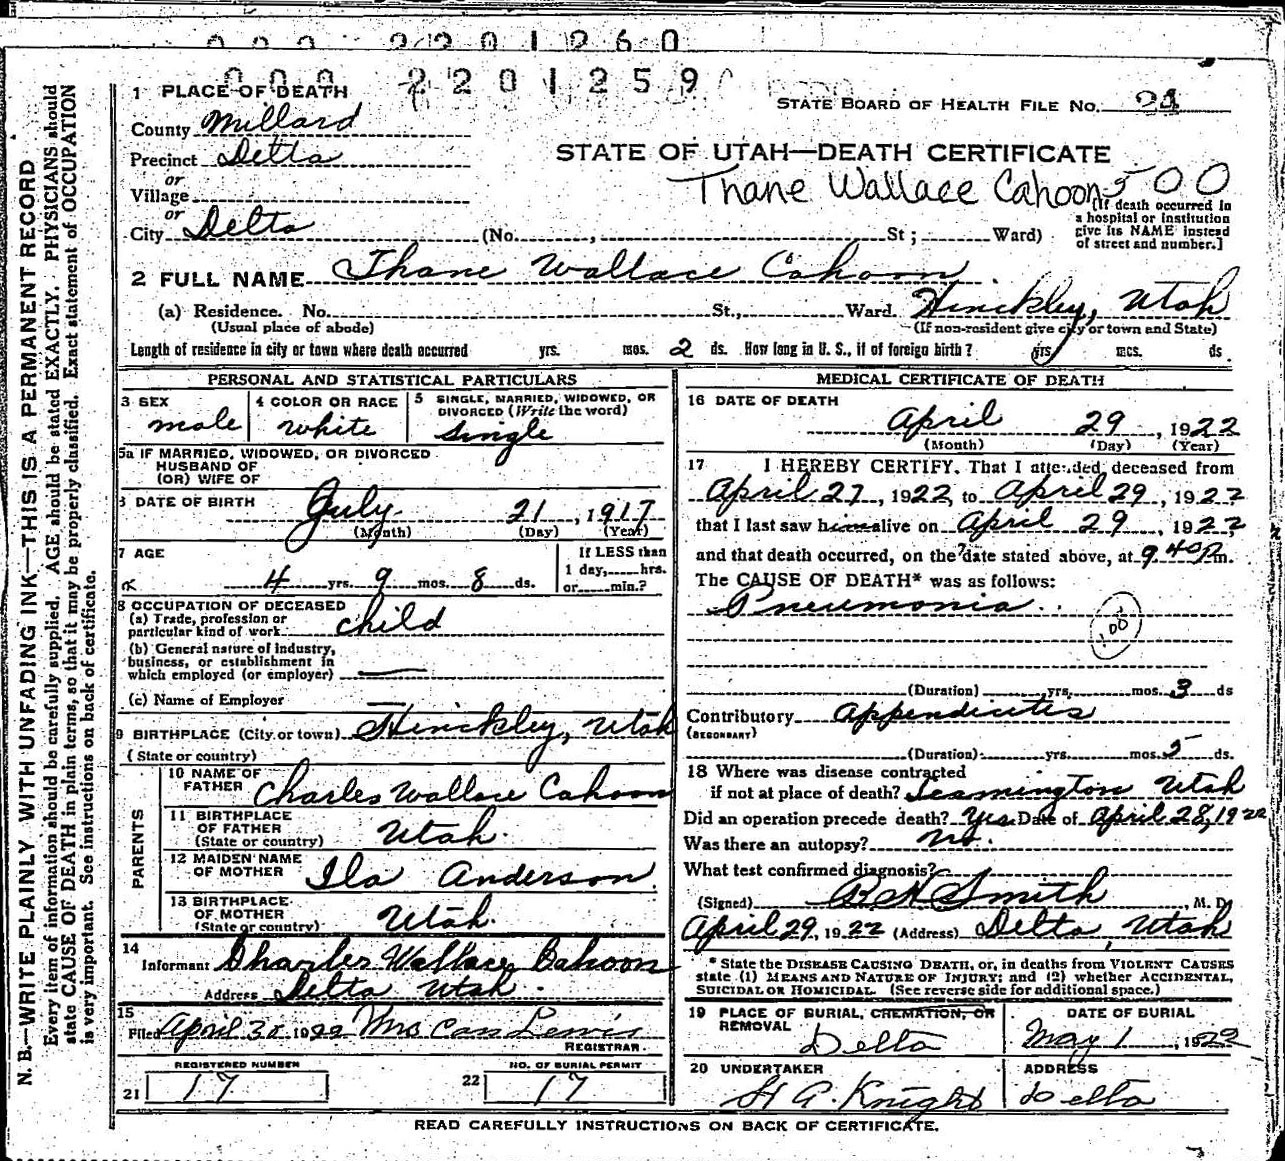 000 2201260
000 2201259
1 PLACE OF DEATH
STATE BOARD OF HEALTH FILE NO.
County Millard
Precinct Delta
STATE OF UTAH—DEATH CERTIFICATE
or
Thane Wallace Cahoon 500
Village
or
City Delta (No. , St; Ward)
(If death occurred in
a hospital or institution
give its NAME instead
of street and number.]
2 FULL NAME Thane Wallace Cahoon
(a) Residence. No. St., Ward. Hinckley, Utah
(Usual place of abode) (If non-resident give city or town and State)
Length of residence in city or town where death occurred yrs. mos. 2 ds. How long in U. S., if of foreign birth? yrs. mos. ds.
PERSONAL AND STATISTICAL PARTICULARS
3 SEX
male
4 COLOR OR RACE
white
5 SINGLE, MARRIED, WIDOWED, OR
DIVORCED (Write the word)
single
5a IF MARRIED, WIDOWED, OR DIVORCED
HUSBAND OF
(OR) WIFE OF
6 DATE OF BIRTH
July 21, 1917
(Month) (Day) (Year)
7 AGE
4 yrs. 9 mos. 8 ds.
If LESS than
1 day, hrs.
or min.?
8 OCCUPATION OF DECEASED
(a) Trade, profession or
particular kind of work child
(b) General nature of industry,
business, or establishment in
which employed (or employer)
(c) Name of Employer
9 BIRTHPLACE (City or town) Hinckley, Utah
(State or country)
PARENTS
10 NAME OF
FATHER Charles Wallace Cahoon
11 BIRTHPLACE
OF FATHER
(State or country) Utah.
12 MAIDEN NAME
OF MOTHER Ila Anderson.
13 BIRTHPLACE
OF MOTHER
(State or country) Utah.
14
Informant Charles Wallace Cahoon
Address Delta Utah.
15
Filed April 30 1922 Mrs Lewis
REGISTRAR.
REGISTERED NUMBER
21 17
NO. OF BURIAL PERMIT
22 17
MEDICAL CERTIFICATE OF DEATH
16 DATE OF DEATH
April 29, 1922
(Month) (Day) (Year)
17 I HEREBY CERTIFY, That I attended deceased from
April 27, 1922, to April 29, 1922
that I last saw him alive on April 29, 1922,
and that death occurred, on the date stated above, at 9 40 P.m.
The CAUSE OF DEATH* was as follows:
Pneumonia
100
(Duration) yrs. mos. 3 ds
Contributory Appendicites
(SECONDARY)
(Duration) yrs. mos. 5 ds.
18 Where was disease contracted
if not at place of death? Leamington Utah
Did an operation precede death? Yes Date of April 28, 1922
Was there an autopsy? No.
What test confirmed diagnosis?
(Signed) R H Smith, M. D.
April 29, 1922 (Address) Delta, Utah
* State the DISEASE CAUSING DEATH, or, in deaths from VIOLENT CAUSES
state (1) MEANS AND NATURE OF INJURY; and (2) whether ACCIDENTAL,
SUICIDAL OR HOMICIDAL. (See reverse side for additional space.)
19 PLACE OF BURIAL, CREMATION, OR
REMOVAL
Delta
DATE OF BURIAL
May 1, 1922
20 UNDERTAKER
H A. Knight
ADDRESS
Delta
READ CAREFULLY INSTRUCTIONS ON BACK OF CERTIFICATE.
N. B.—WRITE PLAINLY WITH UNFADING INK—THIS IS A PERMANENT RECORD
Every item of information should be carefully supplied. AGE should be stated EXACTLY. PHYSICIANS should
state CAUSE OF DEATH in plain terms, so that it may be properly classified. Exact statement of OCCUPATION
is very important. See instructions on back of certificate.